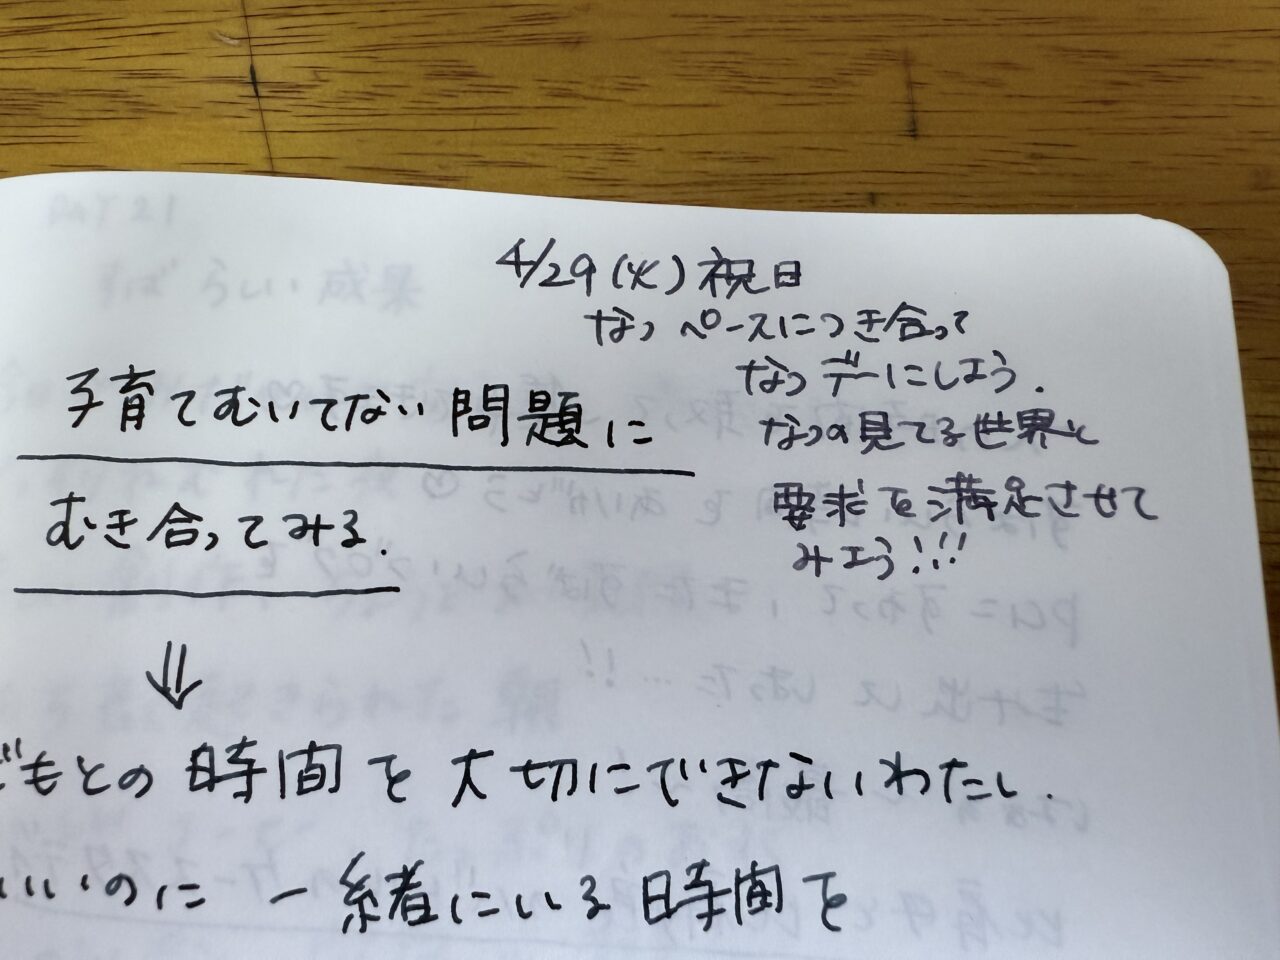 4/29(火)祝日
なつペースにつき合って
なつデーにしよう.
なつの見てる世界と
要求を満足させて
みよう!!!
子育てむいてない問題に
むき合ってみる.
⇓
どもとの時間を大切にできないわたし.
いいのに一緒にいる時間を
DAY 21
すばらしい成果